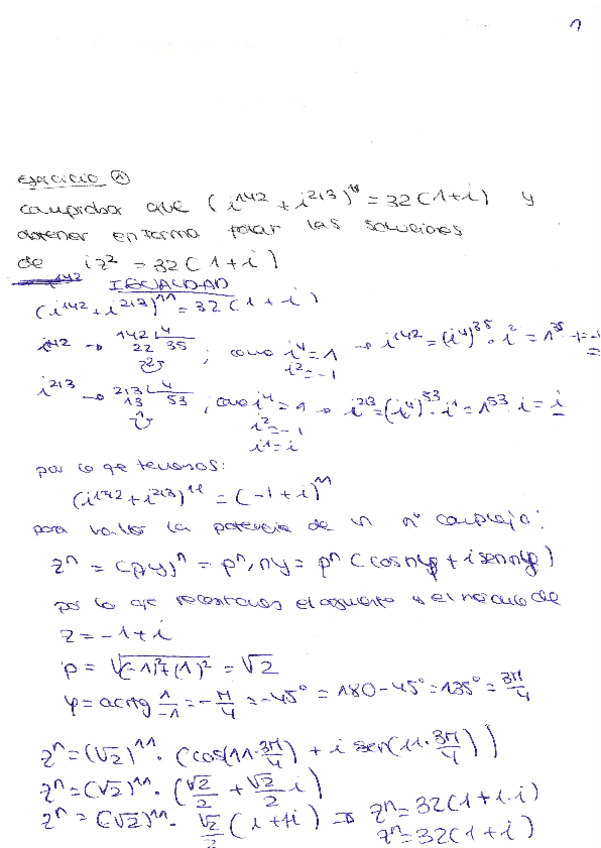 1
ejercicio ①
comprobar que (i^142 + i^213)^11 = 32(1+i) y
obtener en forma polar las soluciones
de iz² = 32(1+i)
IGUALDAD
(i^142 + i^213)^11 = 32(1+i)
i^142 → 142 | 4 22 35 2 ; como i⁴ = 1 → i^142 = (i⁴)^35 · i² = 1^35 · -1 = -1
i² = -1
i^213 → 213 | 4 13 53 1 ; como i⁴ = 1 → i^213 = (i⁴)^53 · i¹ = 1^53 · i = i
i² = -1
i¹ = i
por lo que tenemos:
(i^142 + i^213)^11 = (-1+i)^11
para la potencia de un nº complejo:
z^n = (ρφ)^n = ρ^n, nφ = ρ^n (cos nφ + i sen nφ)
por lo que necesitamos el argumento y el módulo de
z = -1+i
ρ = √((-1)²+(1)²) = √2
φ = acrtg 1/-1 = -π/4 = -45° = 180-45° = 135° = 3π/4
z^n = (√2)^11 · (cos(11·3π/4) + i sen(11·3π/4))
z^n = (√2)^11 · (√2/2 + √2/2 i)
z^n = (√2)^11 · √2/2 (1+1i) ⇒ z^n = 32(1+1·i)
z^n = 32(1+i)